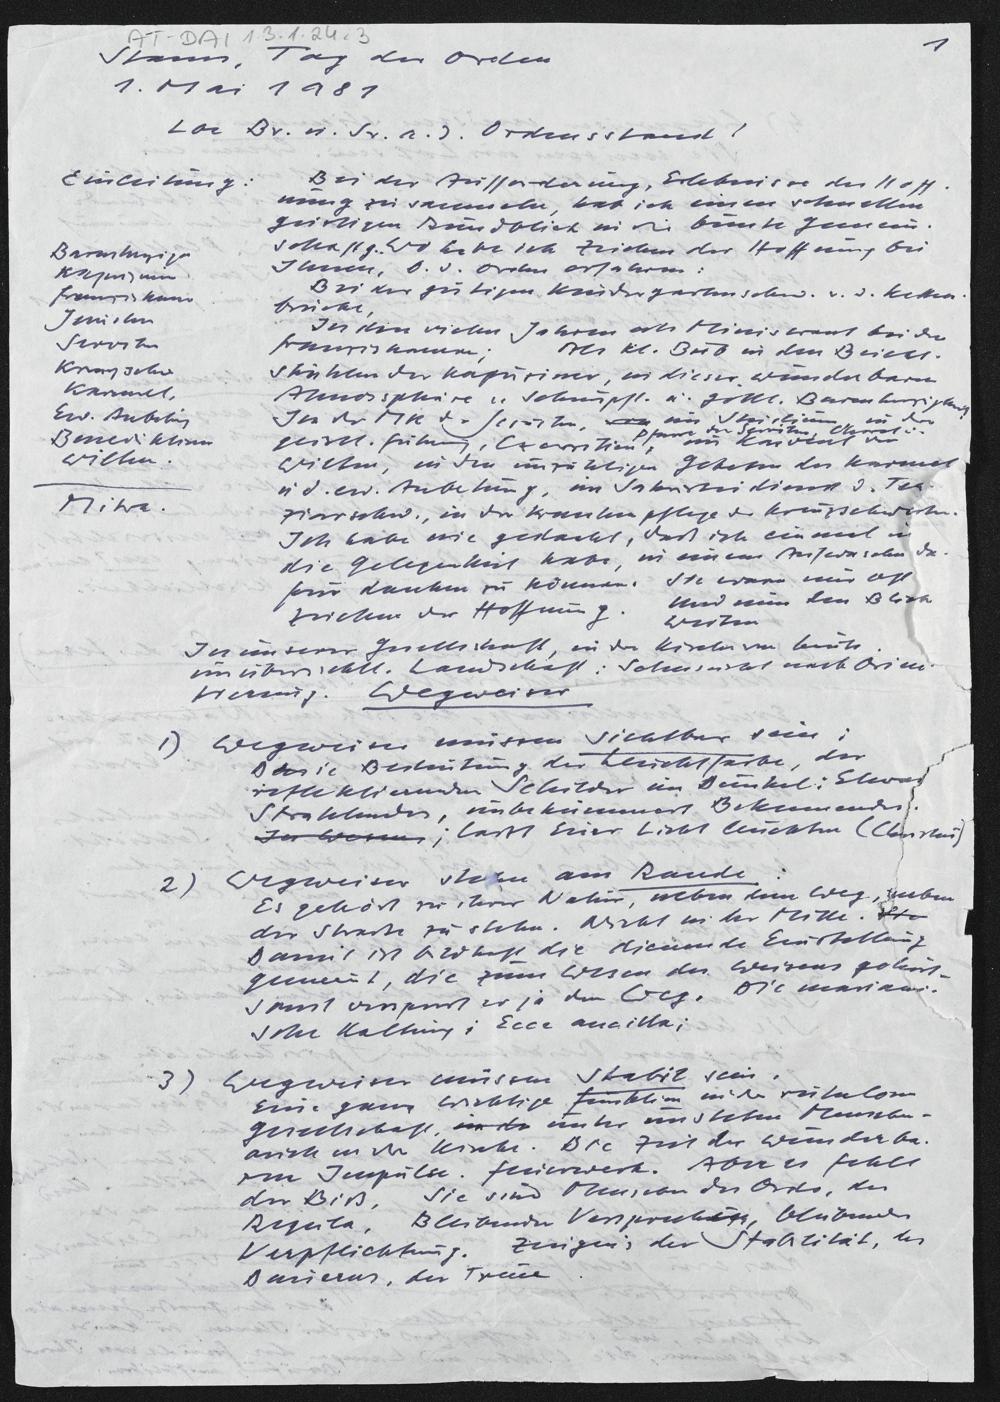 AT-DAI 1.3.1.24.3
1
Stams, Tag der Orden
1. Mai 1981
Br. u. Sr. a. d. Ordensstand!
Einleitung:
Bei der Aufforderung, Erlebnisse der Hoff-
nung zu sammeln, hab ich einen schnellen
geistigen Rundblick in die bunte Gemein-
schaft habe ich Zeichen der Hoffnung bei
Ihnen, b. d. Orden erfahren:
Bei der gütigen Kindergartenschw. v. d. Ketten-
brücke,
In den vielen Jahren als Ministrant bei den
Franziskanern; Als kl. Bub in den Beicht-
stühlen der Kapuziner, in dieser wunderbaren
Atmosphäre v. Schnupft. u. göttl. Barmherzigkeit
In der MK d. Jesuiten, im Stritium in der
Pfarre der Serviten,
geistl. Führung, Exerzitien, im Konvent von
Wilten, in den unzähligen Gebeten des Karmel
u. d. ew. Anbetung, im Sakristeidienst d. Ter-
ziarschw., in der Krankenpflege der Kreuzschwestern.
Ich habe nie gedacht, dass ich einmal
die Gelegenheit habe, in einem Aufwaschen da-
für danken zu können. Sie waren mir oft
Zeichen der Hoffnung. Und nun den Blick
weiten
Barmherzige
Kapuziner
Franziskaner
Jesuiten
Serviten
Kreuzschw.
Karmel,
Ew. Anbetung
Benediktiner
Wilten.
Mitra.
In unserer Gesellschaft, in der Kirche von heute
unübersichtl. Landschaft: Sehnsucht nach Orien-
tierung. Wegweiser
1) Wegweiser müssen sichtbar sein:
Die Bedeutung der Leuchtfarbe, der
reflektierenden Schilder im Dunkel: Etwas
Strahlendes, unbekümmert Bekennendes.
; lasst Euer Licht leuchten (Christus)
2) Wegweiser stehen am Rande:
Es gehört zu ihrer Natur, neben dem Weg, neben
der Strasse zu stehen. Nicht in der Mitte.
Damit ist bildhaft die dienende Einstellung
gemeint, die zum Wesen des Weisens gehört.
Sonst versperrt er ja den Weg. Die mariani-
sche Haltung: Ecce ancilla;
3) Wegweiser müssen stabil sein.
Eine ganz wichtige Funktion in der ruhelosen
Gesellschaft, unter unsteten Menschen-
auch in der Kirche. Die Zeit der wunderba-
ren Impulse. Feuerwerk. Aber es fehlt
der Biß. Sie sind Menschen des Ordo, der
Regula, Bleibender Versprechen, bleibender
Verpflichtung. Zeugnis der Stabilität, des
Dauerns, der Treue.